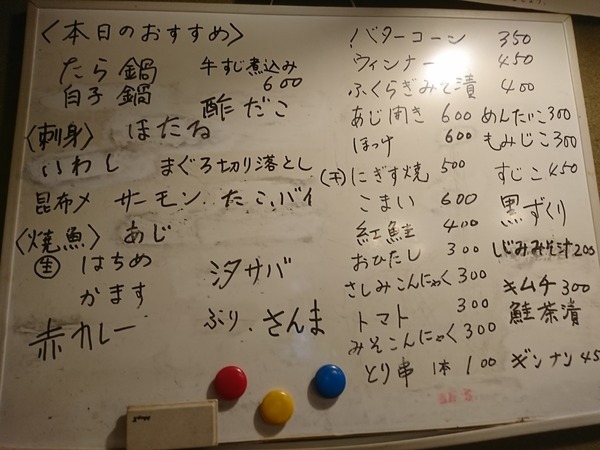 〈本日のおすすめ〉
たら鍋 牛すじ煮込み
600
白子鍋 酢だこ
〈刺身〉 ほたる
いわし まぐろ切り落とし
昆布〆 サーモン、たこ、バイ
〈焼魚〉 あじ
生 はちめ
かます
汐サバ
赤カレー
ぶり、さんま
バターコーン 350
ウィンナー 450
ふくらぎみそ漬 400
あじ開き 600
ほっけ 600
(干)にぎす焼 500
こまい 600
紅鮭 400
おひたし 300
さしみこんにゃく 300
トマト 300
みそこんにゃく 300
とり串 1本 100
めんたいこ 300
もみじこ 300
すじこ 450
黒ずくり
しじみみそ汁 200
キムチ 300
鮭茶漬
ギンナン 45